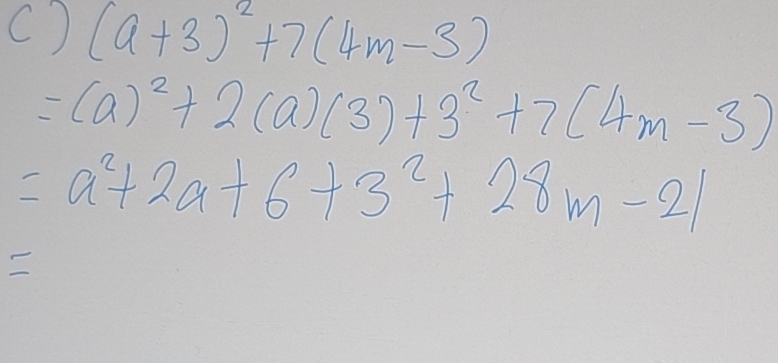 c) (a+3)² + 7(4m-3)
= (a)² + 2(a)(3) + 3² + 7(4m-3)
= a² + 2a + 6 + 3² + 28m - 21
=